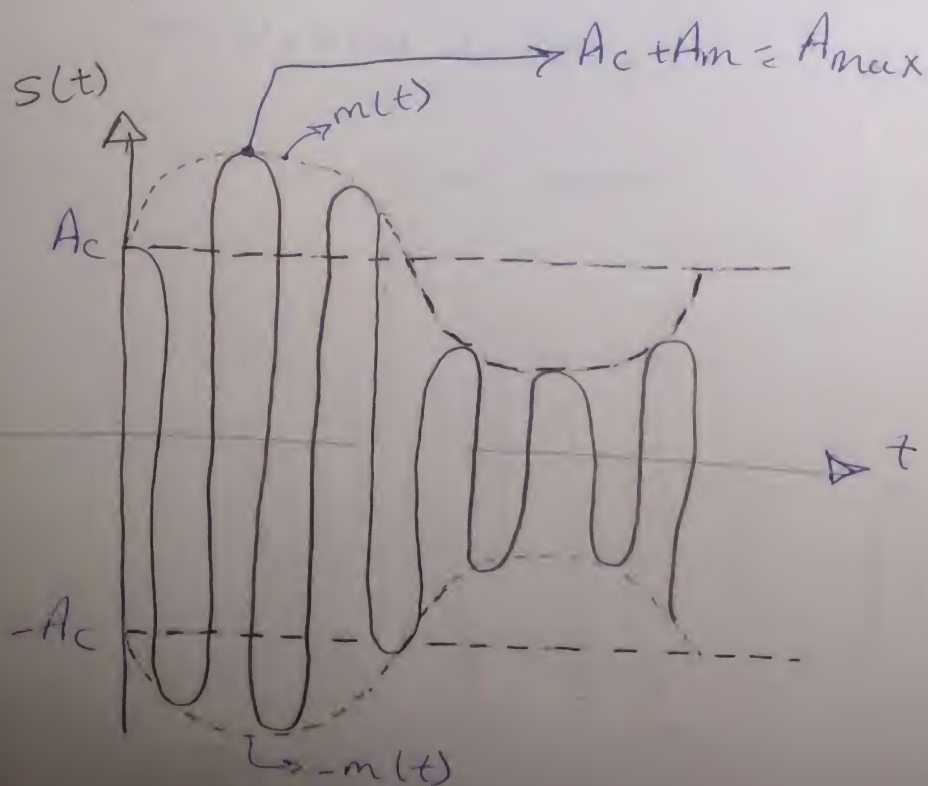 Ac + Am = Amax
s(t)
m(t)
Ac
t
-Ac
-m(t)